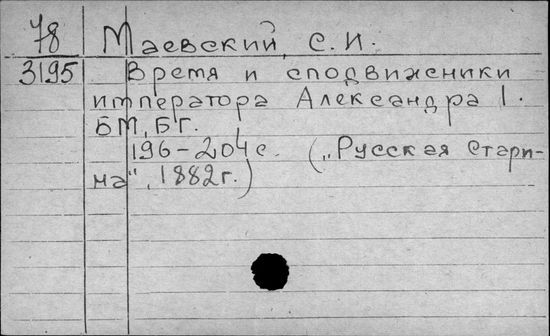 78 Маевский, С. И.
3195 Время и сподвижники
императора Александра I.
БМ, БГ.
196-204 с. („Русская стари-
на", 1882 г.)